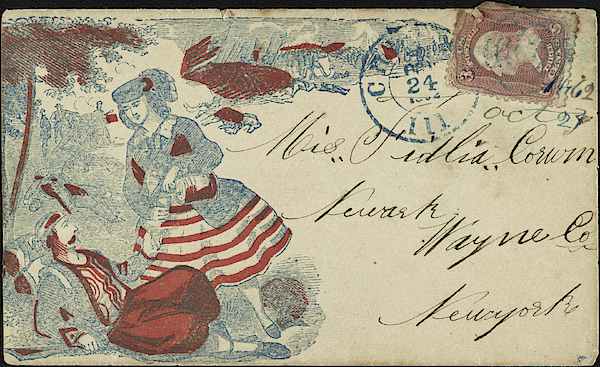 24
III
3
1862
Oct 27
Mis,, Corwin
Newark
Wayne Co
Newyork